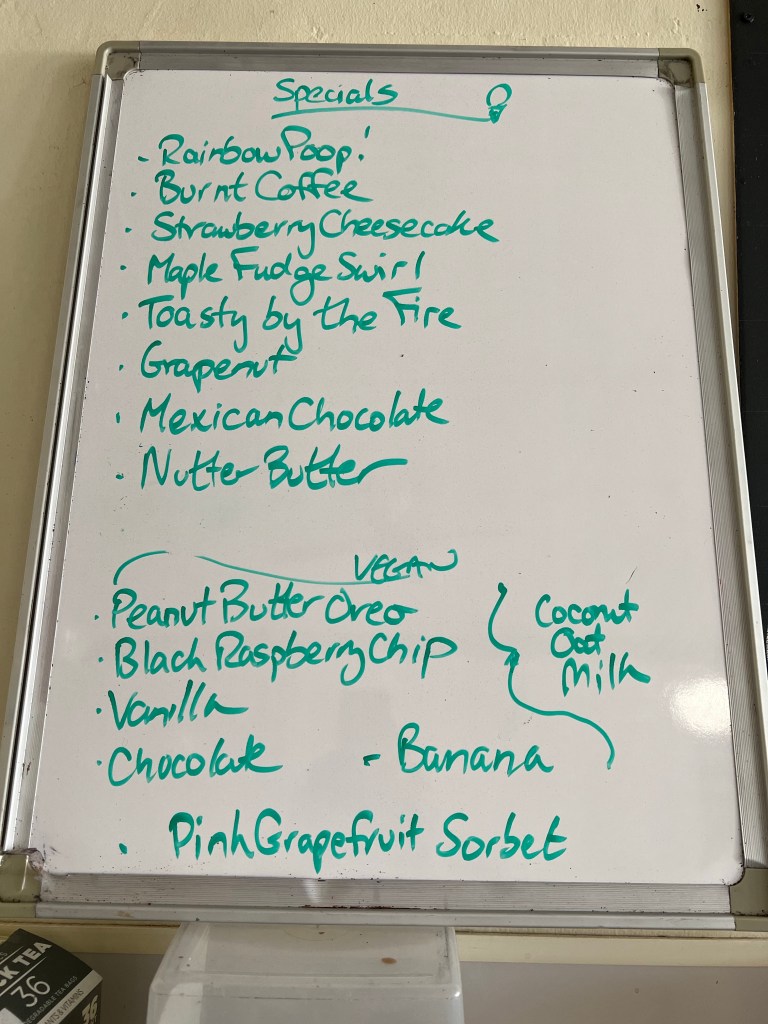 Specials
- Rainbow Poop!
· Burnt Coffee
· Strawberry Cheesecake
· Maple Fudge Swirl
· Toasty by the Fire
· Grapenut
· Mexican Chocolate
· Nutter Butter
VEGAN
· Peanut Butter Oreo
· Black Raspberry Chip
· Vanilla
· Chocolate - Banana
Coconut
Oat
Milk
· Pink Grapefruit Sorbet
CK TEA
36